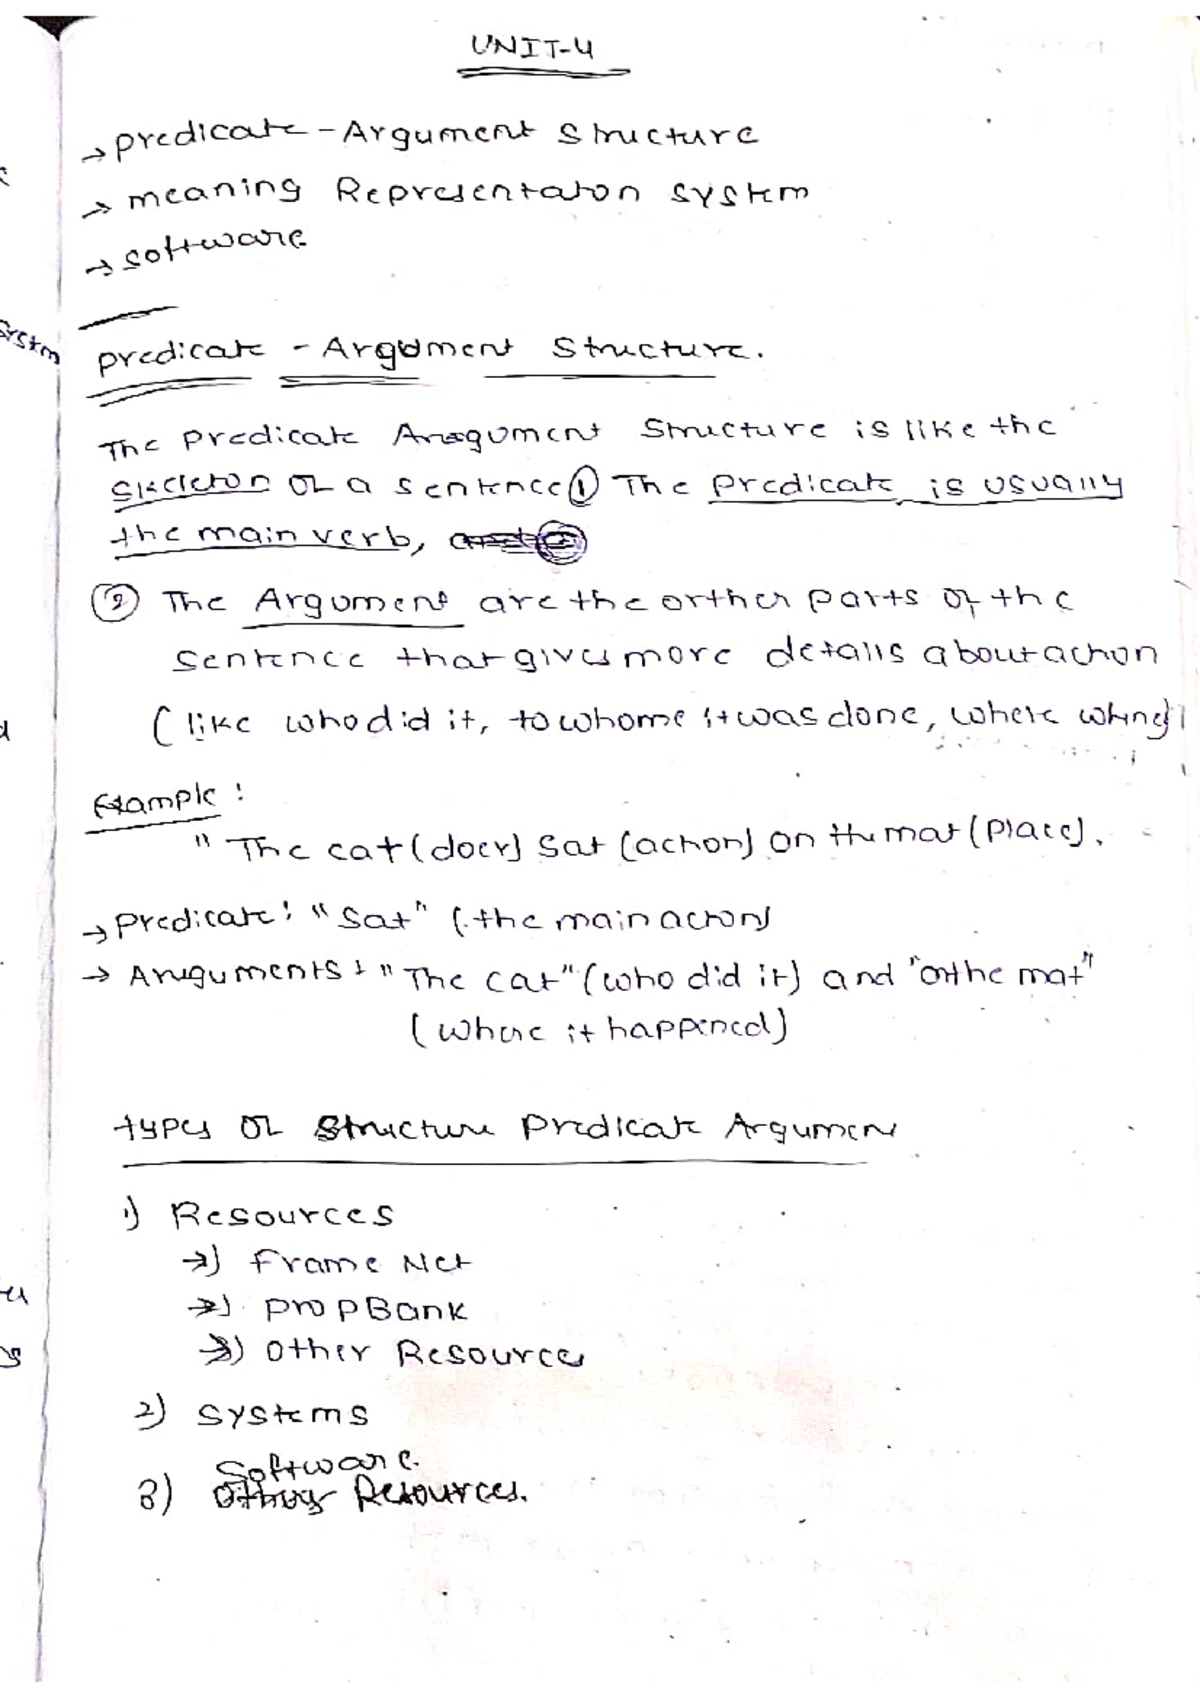 UNIT-4
→ predicate - Argument Structure
→ meaning Representaton system
→ software
System
predicate - Argument Structure.
The Predicate Aragument Structure is like the
Skeleton of a sentence ① The predicate is usually
the main verb,
② The Argument are the orther parts of the
Sentence that gives more details about action
(like who did it, to whome it was done, where
Example :
" The cat (doer) Sat (action) on the mat (place).
→ Predicate: "Sat" (the main action)
→ Aruguments: "The cat" (who did it) and "on the mat"
(where it happened)
types of Structure Predicate Argument
1) Resources
→1) Frame Net
→2) PropBank
→3) Other Resources
2) Systems
Software.
3) Resources.